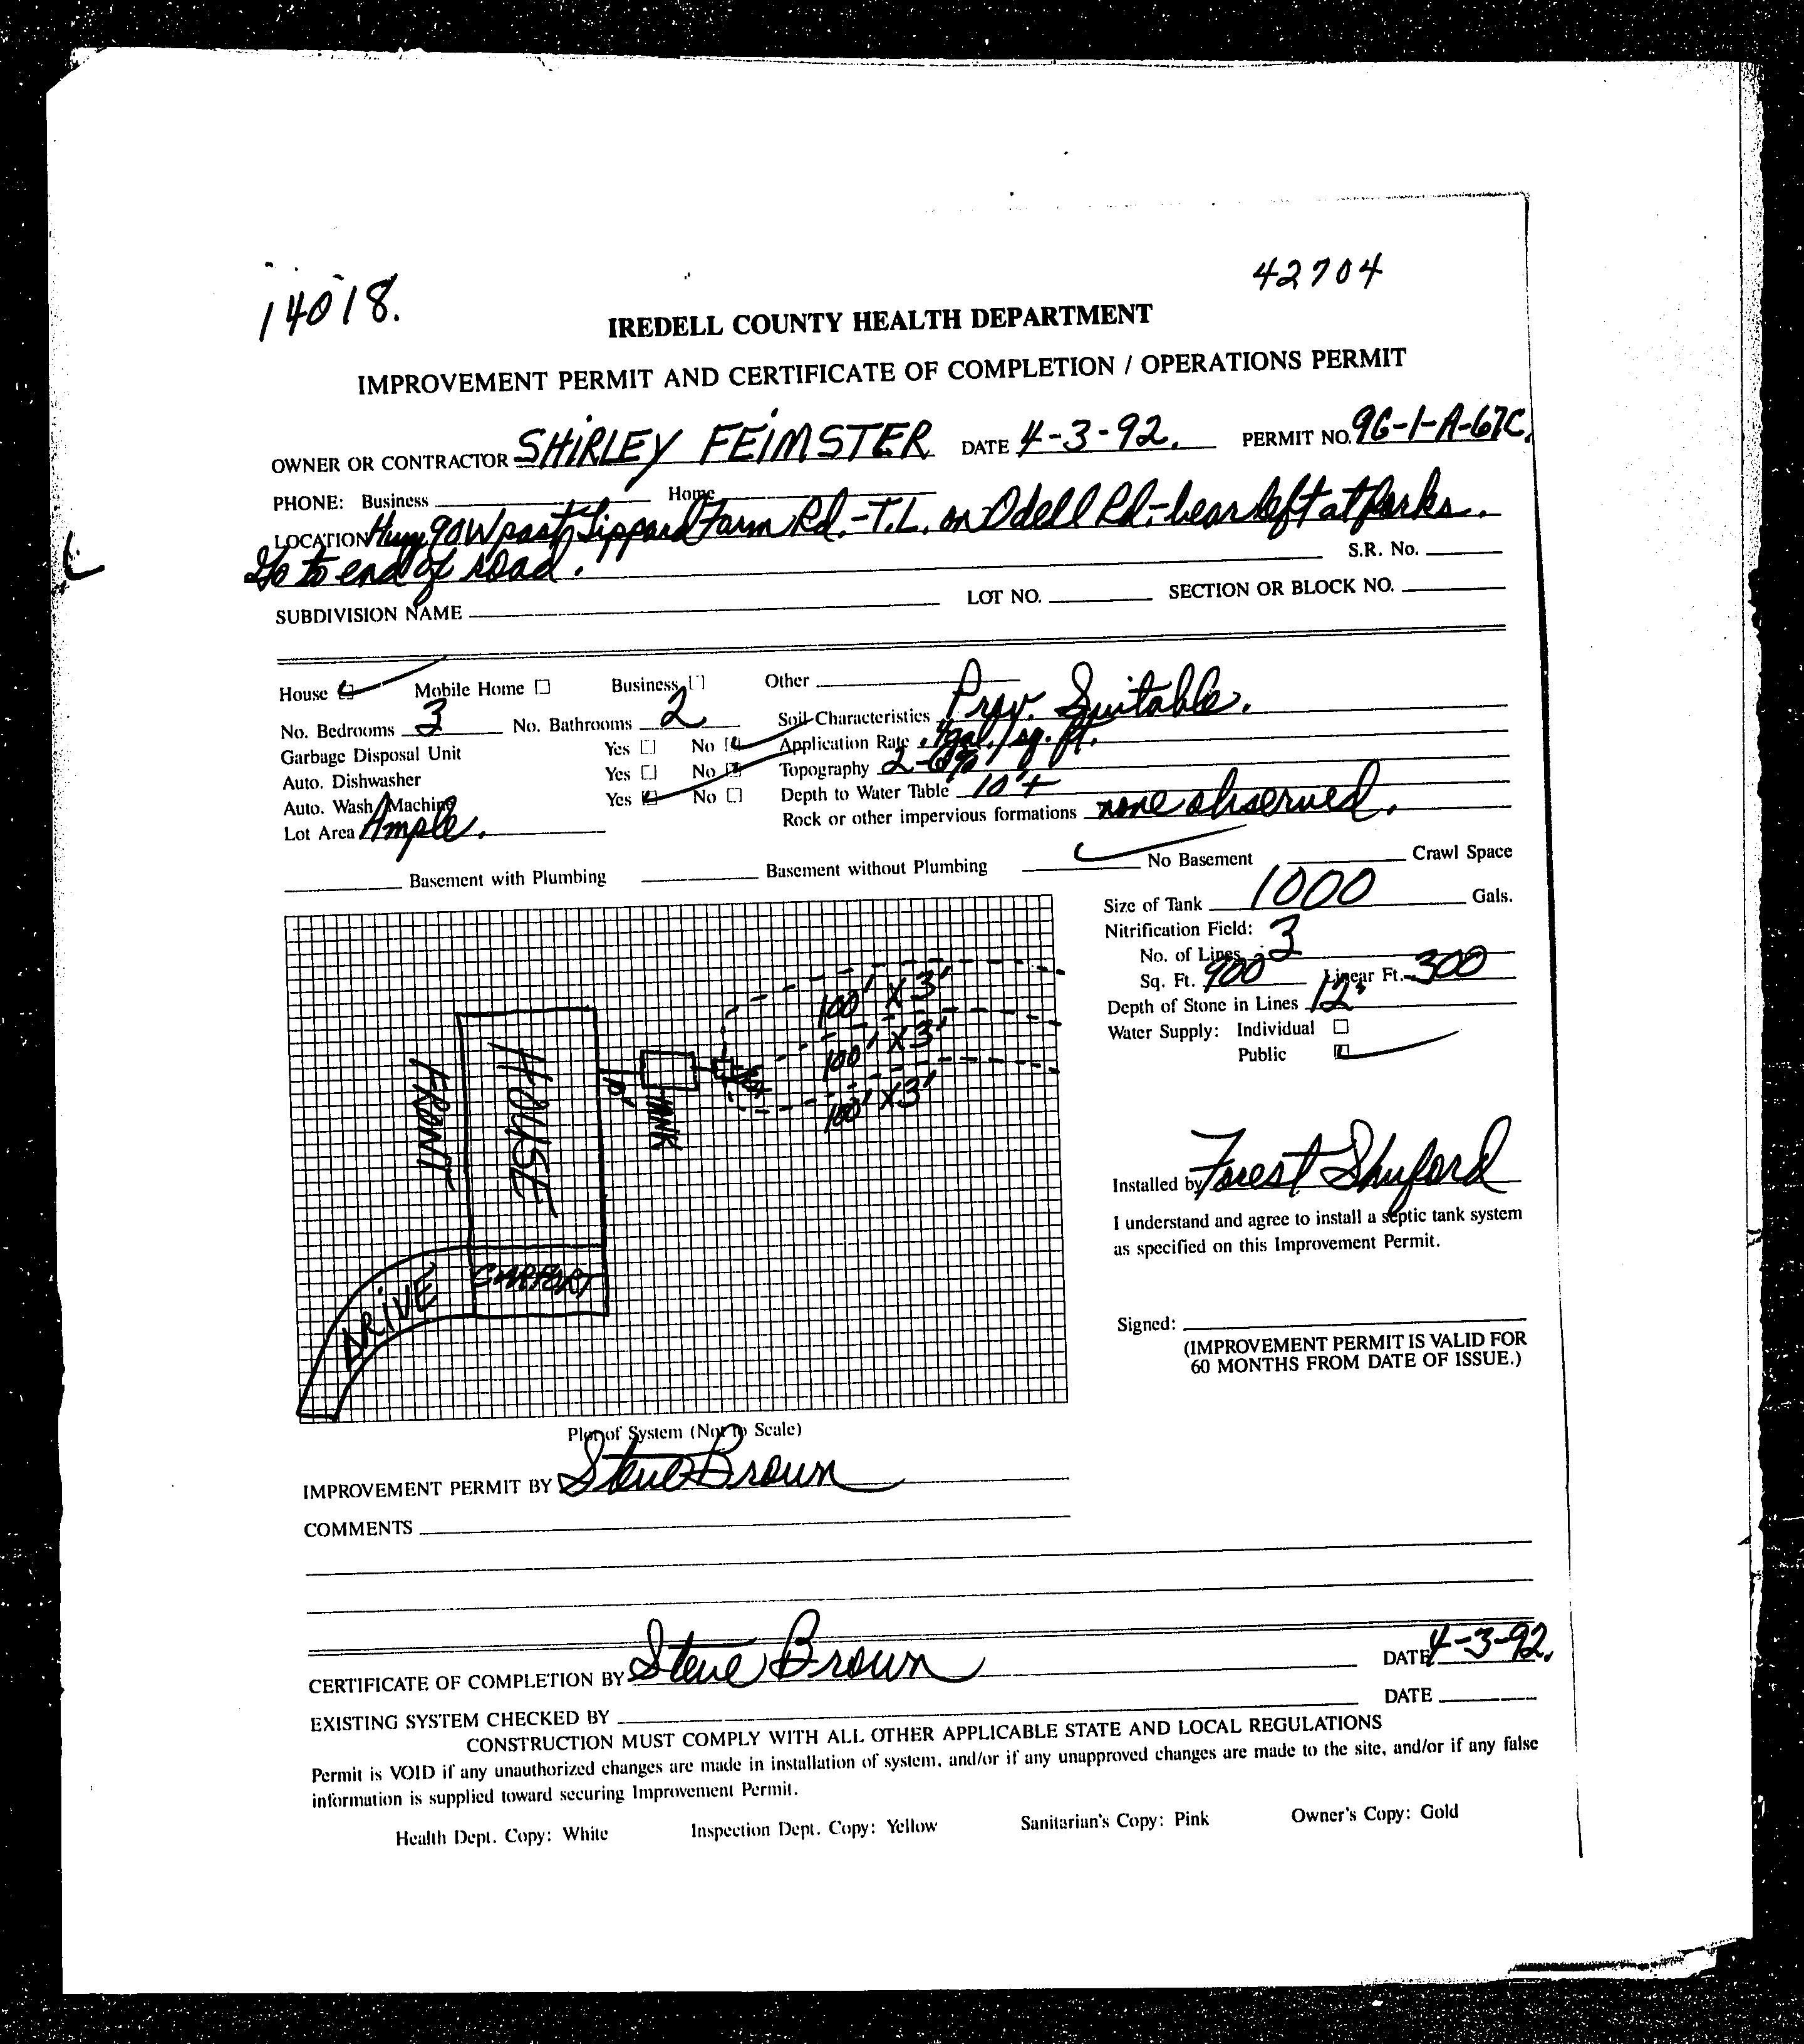 14018.
42704
IREDELL COUNTY HEALTH DEPARTMENT
IMPROVEMENT PERMIT AND CERTIFICATE OF COMPLETION / OPERATIONS PERMIT
OWNER OR CONTRACTOR SHIRLEY FEIMSTER DATE 4-3-92. PERMIT NO. 9G-1-A-67C.
PHONE: Business Home
LOCATION Hwy 90W past Lippard Farm Rd.-T.L. on Odell Rd.-bear left at forks.
Go to end of road. S.R. No.
SUBDIVISION NAME LOT NO. SECTION OR BLOCK NO.
House Mobile Home Business Other
No. Bedrooms 3 No. Bathrooms 2 Soil Characteristics Prov. Suitable.
Garbage Disposal Unit Yes No Application Rate .4gal./sq. ft.
Auto. Dishwasher Yes No Topography 2-6%
Auto. Wash Machine Yes No Depth to Water Table 10'+
Lot Area Ample. Rock or other impervious formations none observed.
Basement with Plumbing Basement without Plumbing No Basement Crawl Space
Size of Tank 1000 Gals.
Nitrification Field:
No. of Lines 3
Sq. Ft. 900 Linear Ft. 300
Depth of Stone in Lines 12"
Water Supply: Individual
Public
100' X 3'
100' X 3'
100' X 3'
FRONT
HOUSE
10'
TANK
CARPORT
DRIVE
Installed by Forest Shuford
I understand and agree to install a septic tank system
as specified on this Improvement Permit.
Signed:
(IMPROVEMENT PERMIT IS VALID FOR
60 MONTHS FROM DATE OF ISSUE.)
Plot of System (Not to Scale)
IMPROVEMENT PERMIT BY Steve Brown
COMMENTS
CERTIFICATE OF COMPLETION BY Steve Brown DATE 4-3-92.
EXISTING SYSTEM CHECKED BY DATE
CONSTRUCTION MUST COMPLY WITH ALL OTHER APPLICABLE STATE AND LOCAL REGULATIONS
Permit is VOID if any unauthorized changes are made in installation of system, and/or if any unapproved changes are made to the site, and/or if any false
information is supplied toward securing Improvement Permit.
Health Dept. Copy: White Inspection Dept. Copy: Yellow Sanitarian's Copy: Pink Owner's Copy: Gold